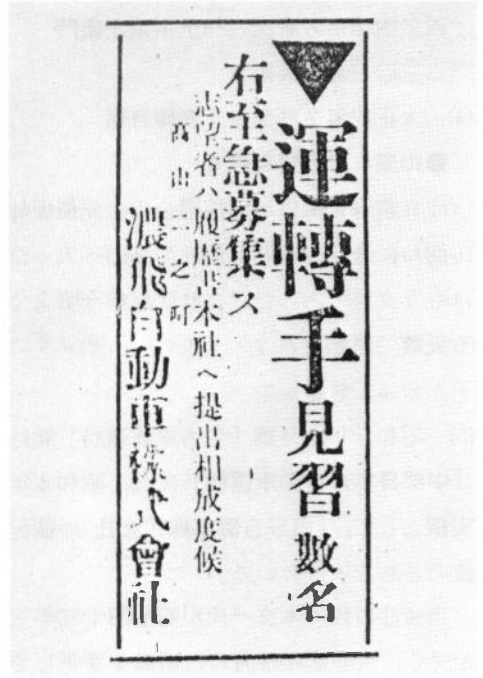 運轉手見習數名
右至急募集ス
志望者ハ履歴書本社ヘ提出相成度候
高山二之町
濃飛自動車株式會社